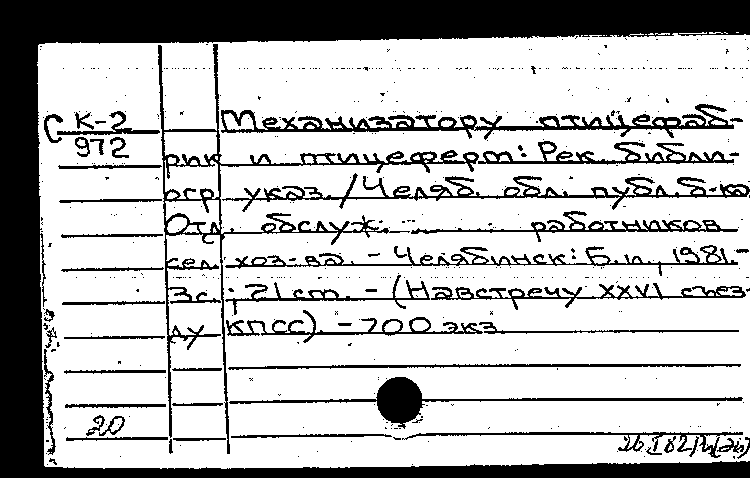 С К-2
972
Механизатору птицефаб-
рик и птицеферм: Рек. библи-
огр. указ. / Челяб. обл. публ. б-ка
Отд. обслуж. работников
сел. хоз-ва. - Челябинск: Б.и., 1981.-
3с.; 21 ст. - (Навстречу XXVI съез-
ду КПСС). - 700 экз.
20